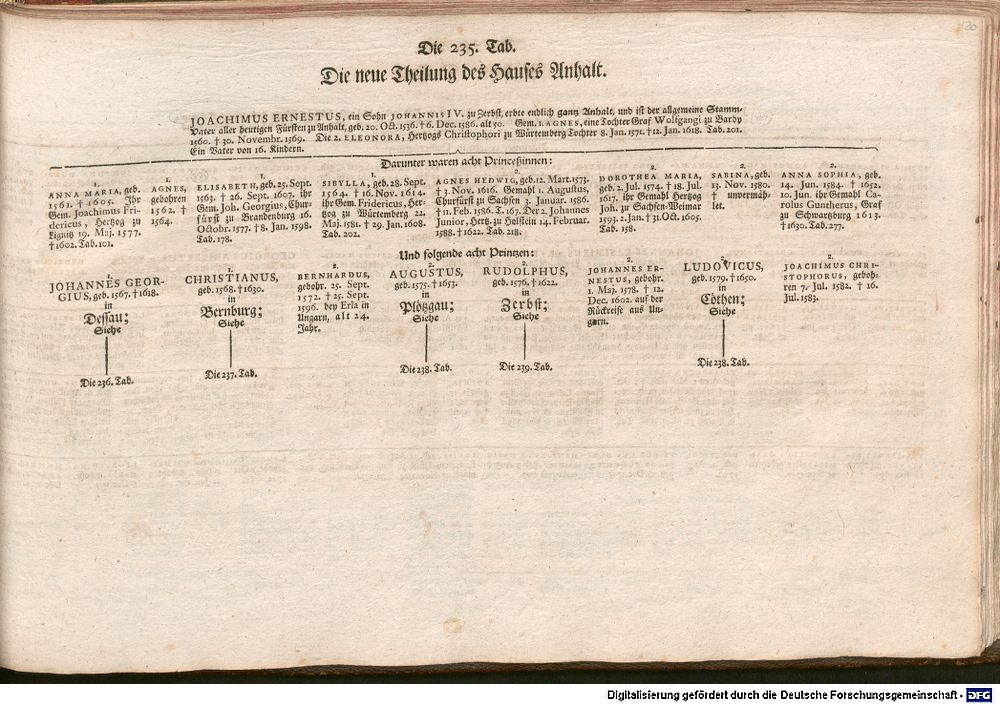 20
Die 235. Tab.
Die neue Theilung des Hauses Anhalt.
JOACHIMUS ERNESTUS, ein Sohn JOHANNIS IV. zu Zerbst, erbte endlich gantz Anhalt, und ist der allgemeine Stamm-
Vater aller heutigen Fürsten zu Anhalt, geb. 20. Oct. 1536. † 6. Dec. 1586. alt 50. Gem. 1. AGNES, eine Tochter Graf Wolfgangi zu Barby
1560. † 30. Novembr. 1569. Die 2. ELEONORA, Hertzogs Christophori zu Würtemberg Tochter 8. Jan. 1571. † 12. Jan. 1618. Tab. 201.
Ein Vater von 16. Kindern.
Darunter waren acht Princeßinnen:
1.
ANNA MARIA, geb.
1561. † 1605. Ihr
Gem. Joachimus Fri-
dericus, Hertzog zu
Lignitz 19. Maj. 1577.
† 1602. Tab. 101.
1.
AGNES,
gebohren
1562. †
1564.
1.
ELISABETH, geb. 25. Sept.
1563. † 26. Sept. 1607. ihr
Gem. Joh. Georgius, Chur-
fürst zu Brandenburg 16.
Octobr. 1577. † 8. Jan. 1598.
Tab. 178.
1.
SIBYLLA, geb. 28. Sept.
1564. † 16. Nov. 1614.
ihr Gem. Fridericus, Her-
tzog zu Würtemberg 22.
Maj. 1581. † 29. Jan. 1608.
Tab. 202.
2.
AGNES HEDWIG, geb. 12. Mart. 1573.
† 3. Nov. 1616. Gemahl 1. Augustus,
Churfürst zu Sachsen 3. Januar. 1586.
† 11. Feb. 1586. T. 167. Der 2. Johannes
Junior, Hertz. zu Holstein 14. Februar.
1588. † 1622. Tab. 218.
2.
DOROTHEA MARIA,
geb. 2. Jul. 1574. † 18. Jul.
1617. ihr Gemahl Hertzog
Joh. zu Sachsen-Weimar
1593. 2. Jan. † 31. Oct. 1605.
Tab. 158.
2.
SABINA, geb.
13. Nov. 1580.
† unvermäh-
let.
2.
ANNA SOPHIA, geb.
14. Jun. 1584. † 1652.
10. Jun. ihr Gemahl Ca-
rolus Guntherus, Graf
zu Schwartzburg 1613.
† 1630. Tab. 277.
Und folgende acht Printzen:
1.
JOHANNES GEOR-
GIUS, geb. 1567. † 1618.
in
Dessau;
Siehe
Die 236. Tab.
1.
CHRISTIANUS,
geb. 1568. † 1630.
in
Bernburg;
Siehe
Die 237. Tab.
2.
BERNHARDUS,
gebohr. 25. Sept.
1572. † 25. Sept.
1596. bey Erla in
Ungarn, alt 24.
Jahr.
2.
AUGUSTUS,
geb. 1575. † 1653.
in
Plötzgau;
Siehe
Die 238. Tab.
2.
RUDOLPHUS,
geb. 1576. † 1622.
in
Zerbst;
Siehe
Die 239. Tab.
2.
JOHANNES ER-
NESTUS, gebohr.
1. Maj. 1578. † 12.
Dec. 1602. auf der
Rückreise aus Un-
garn.
2.
LUDOVICUS,
geb. 1579. † 1650.
in
Cöthen;
Siehe
Die 238. Tab.
2.
JOACHIMUS CHRI-
STOPHORUS, geboh-
ren 7. Jul. 1582. † 16.
Jul. 1583.
Digitalisierung gefördert durch die Deutsche Forschungsgemeinschaft - DFG